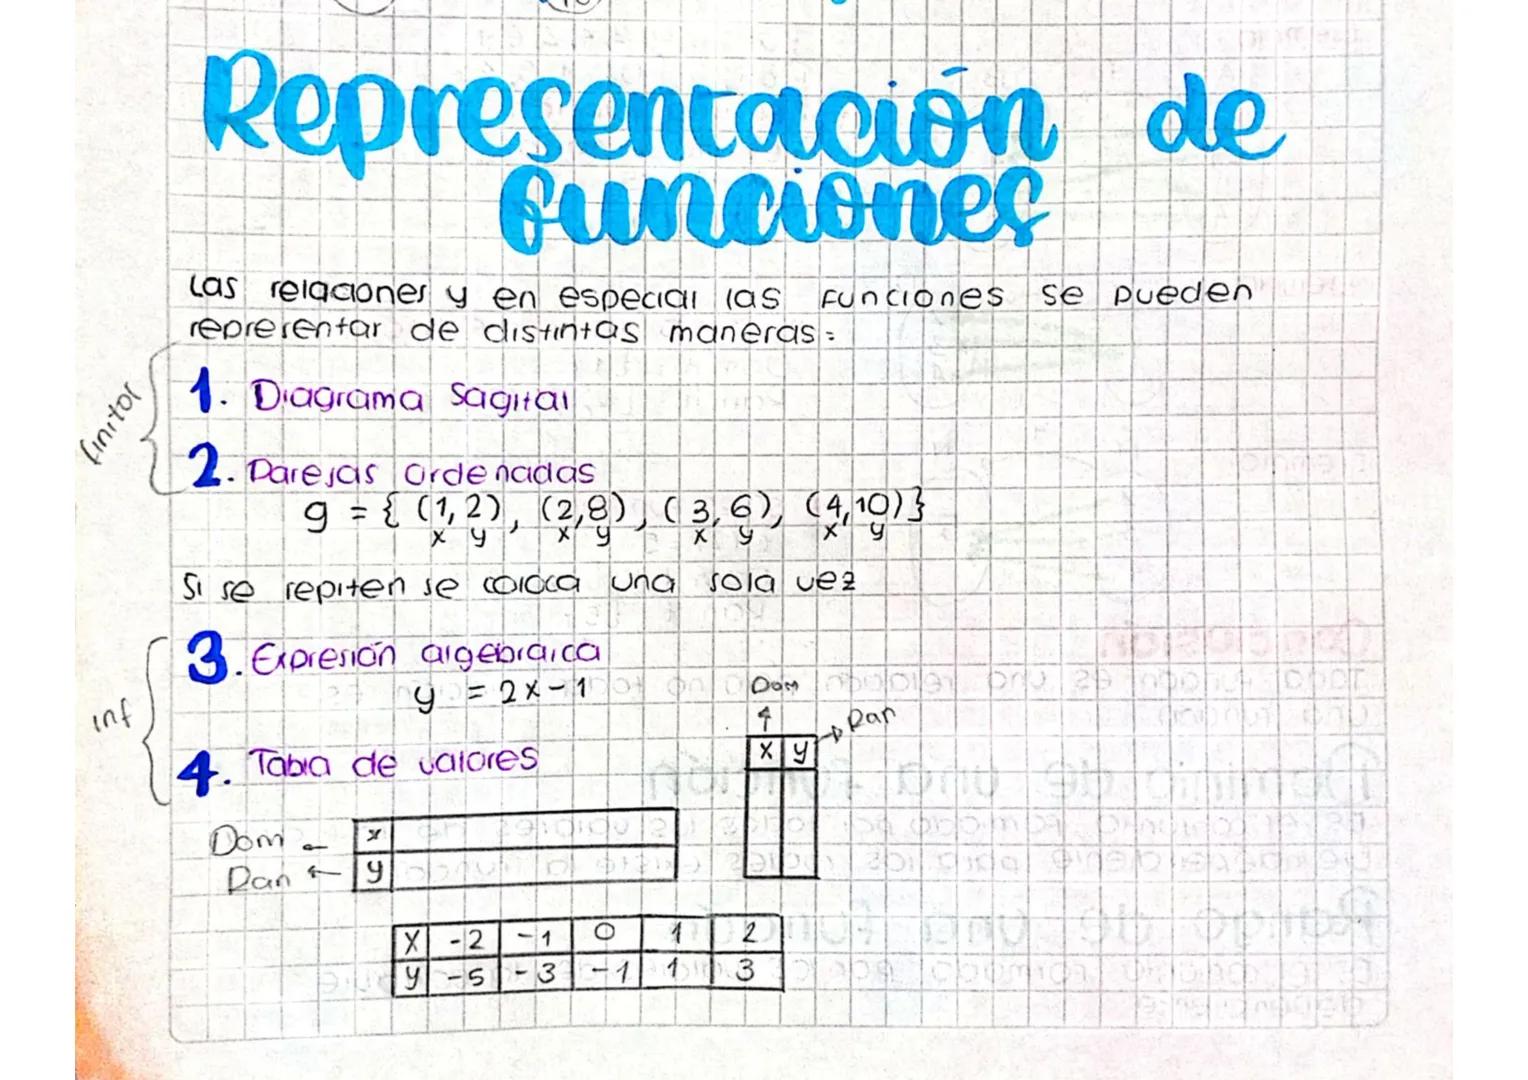 Representación de
funciones
Las relaciones y en especial las funciones se pueden
representar de distintas maneras:
finitos
1. Diagrama Sagital
2. Parejas Ordenadas
g = { (1,2), (2,8), (3,6), (4,10)}
x y x y x y x y
Si se repiten se coloca una sola vez
inf
3. Expresión algebraica
y = 2x-1
Dom
Ran
x y
4. Tabla de valores
Dom ← x
Ran ← y
X -2 -1 0 1 2
y -5 -3 -1 1 3